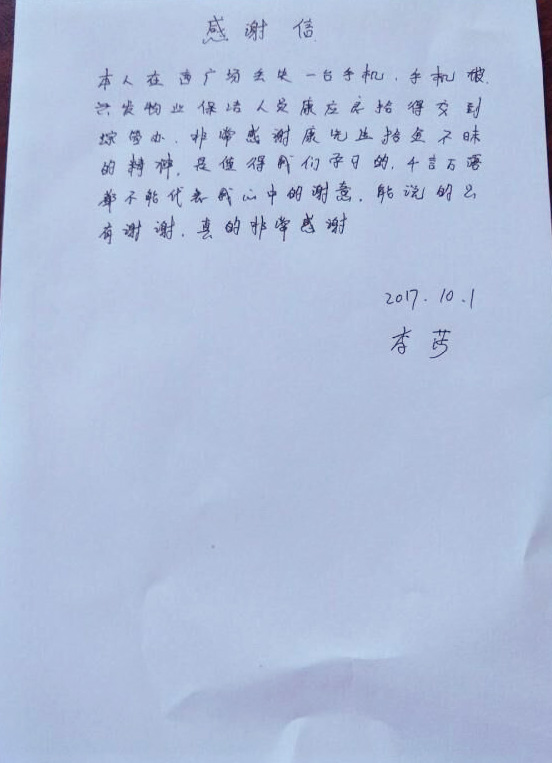 感谢信
本人在西广场丢失一台手机，手机被
兴发物业保洁人员康应宗拾得交到
综管办，非常感谢康先生拾金不昧
的精神，是值得我们学习的，千言万语
都不能代表我心中的谢意，能说的只
有谢谢，真的非常感谢
2017.10.1
李